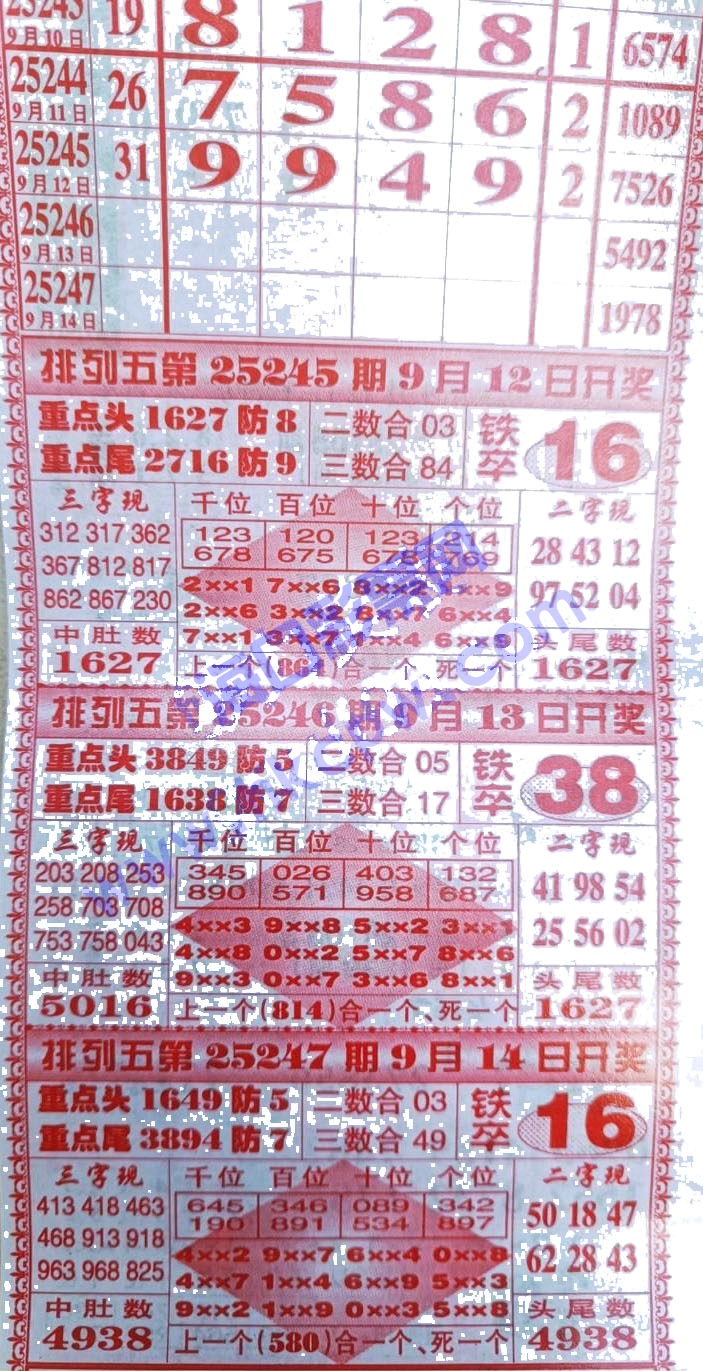 25243 19 8 1 2 8 1 6574
9月10日
25244 26 7 5 8 6 2 1089
9月11日
25245 31 9 9 4 9 2 7526
9月12日
25246 5492
9月13日
25247 1978
9月14日
排列五第25245期9月12日开奖
重点头1627防8 二数合03 铁卒 16
重点尾2716防9 三数合84
三字现 千位 百位 十位 个位 二字现
312 317 362 123 120 123 214 28 43 12
367 812 817 678 675 678 769
862 867 230 2××1 7××6 8××2 1××9 97 52 04
2××6 3××2 8××7 6××4
中肚数 7××1 3××7 1××4 6××9 头尾数
1627 上一个(86)合一个、死一个 1627
排列五第25246期9月13日开奖
重点头3849防5 二数合05 铁卒 38
重点尾1638防7 三数合17
三字现 千位 百位 十位 个位 二字现
203 208 253 345 026 403 132 41 98 54
258 703 708 890 571 958 687
753 758 043 4××3 9××8 5××2 3××1 25 56 02
4××8 0××2 5××7 8××6
中肚数 9××3 0××7 3××6 8××1 头尾数
5016 上一个(814)合一个、死一个 1627
排列五第25247期9月14日开奖
重点头1649防5 二数合03 铁卒 16
重点尾3894防7 三数合49
三字现 千位 百位 十位 个位 二字现
413 418 463 645 346 089 342 50 18 47
468 913 918 190 891 534 897
963 968 825 4××2 9××7 6××4 0××8 62 28 43
4××7 1××4 6××9 5××3
中肚数 9××2 1××9 0××3 5××8 头尾数
4938 上一个(580)合一个、死一个 4938